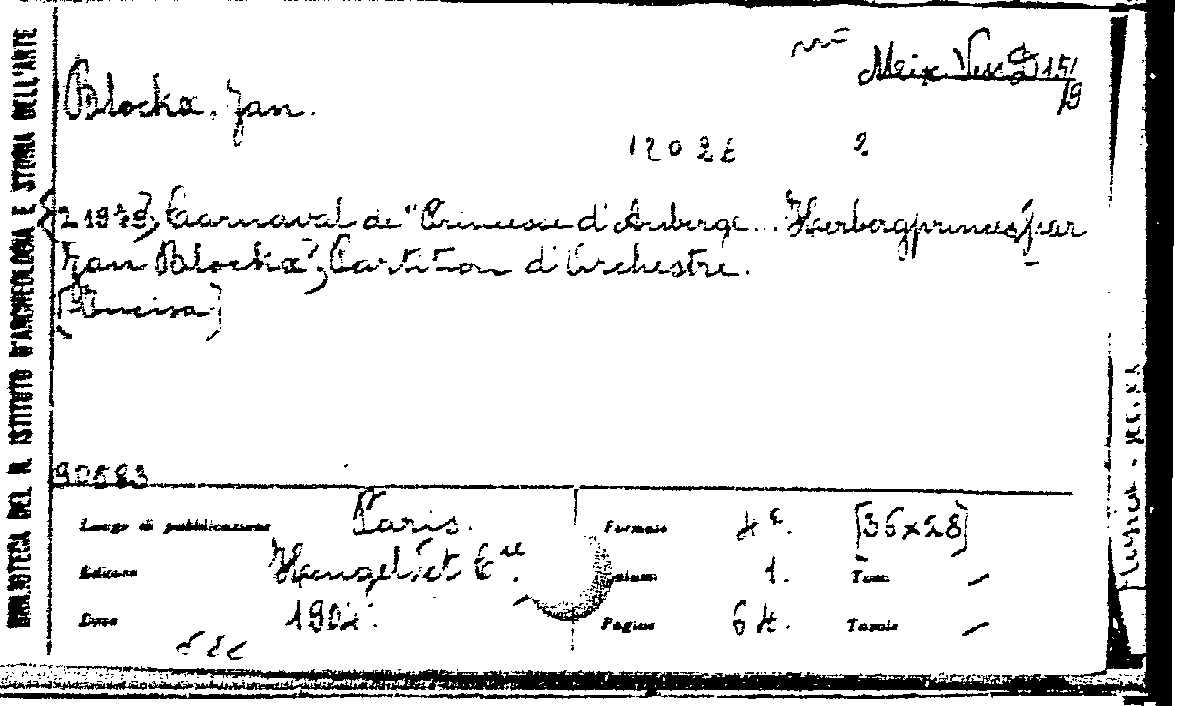 BIBLIOTECA DEL R. ISTITUTO D'ARCHEOLOGIA E STORIA DELL'ARTE
Blockx, Jan.
12026 2
Carnaval de "Princesse d'Auberge... Herbergprinses" par
Jan Blockx, Partition d'Orchestre.
[Incisa]
90583
Luogo di pubblicazione Paris.
Formato 4º. [36×28]
Editore Heugel et Cie.
Volumi 1. Tomi –
Data 1904.
Pagine 64. Tavole –
Musica